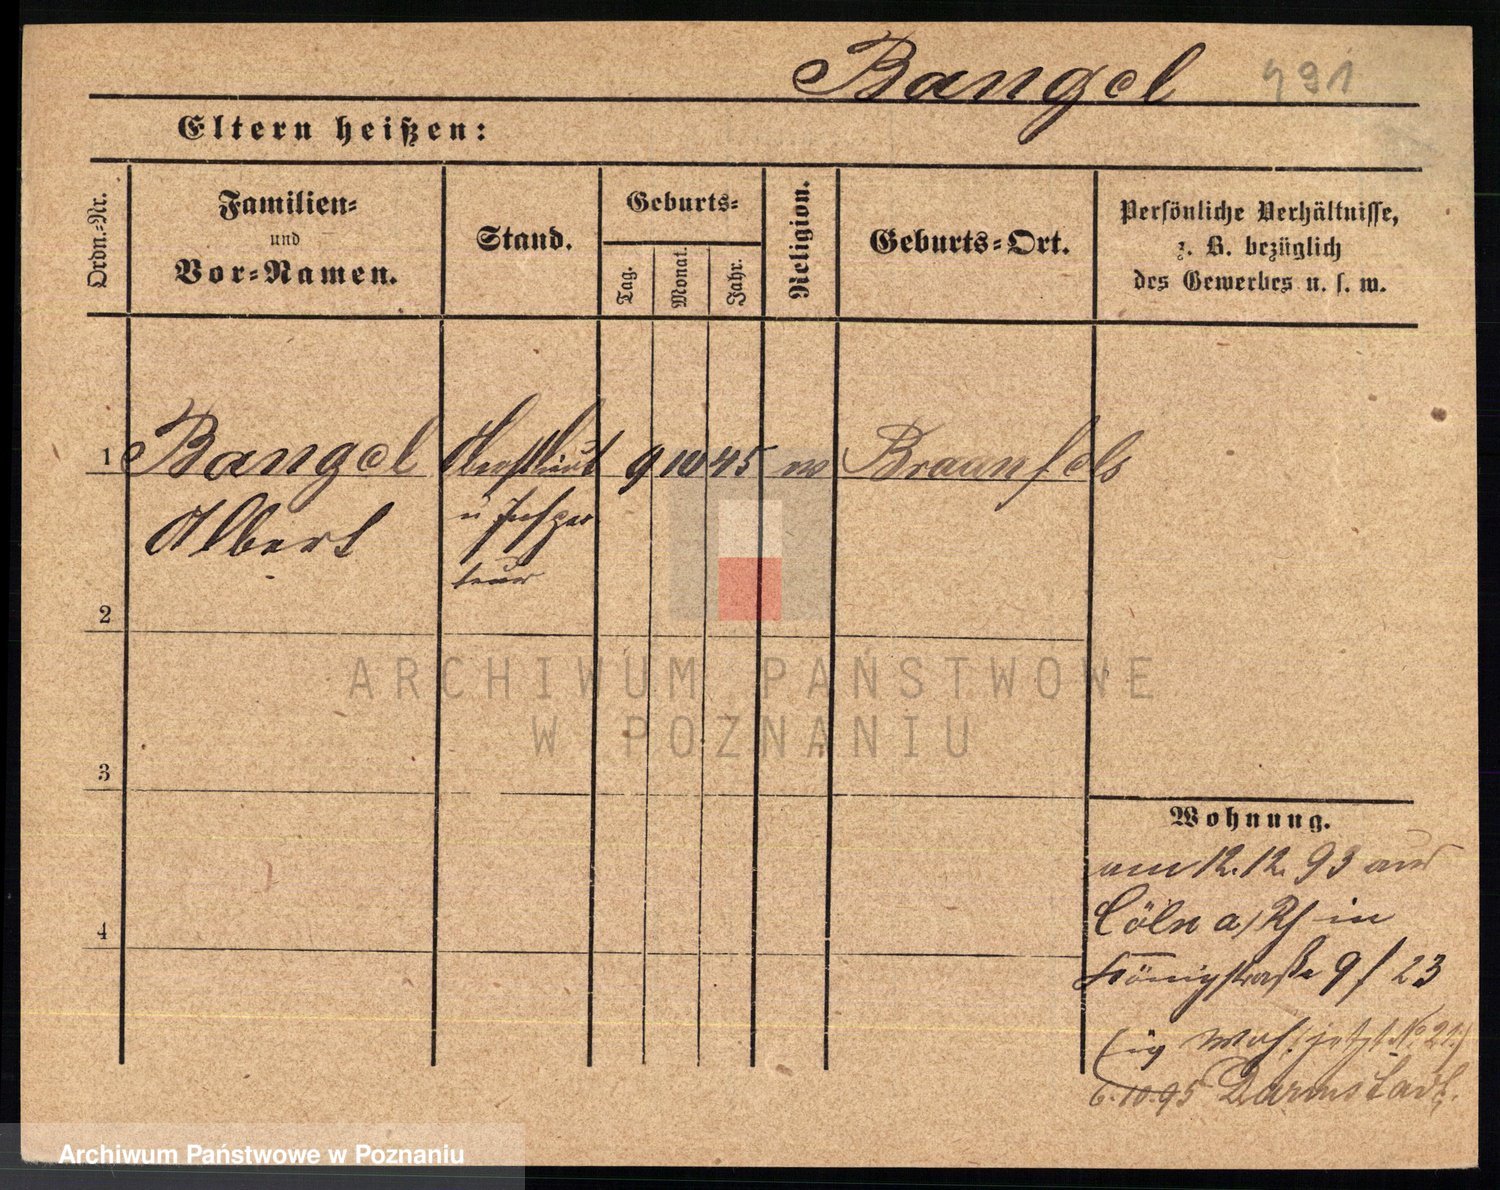 Bangel 791
Eltern heißen:
Ordn.-Nr.
Familien-
und
Vor-Namen.
Stand.
Geburts-
Tag.
Monat.
Jahr.
Religion.
Geburts-Ort.
Persönliche Verhältnisse,
z. B. bezüglich
des Gewerbes u. s. w.
1 Bangel Oberstlieut 9 10 45 ev Braunfels
Albert u Inspec
teur
2
3
4
Wohnung.
am 12.12.93 aus
Cöln a/Rh in
Königstraße 9 / 23
jetzt No 21.)
6.10.95 Darmstadt.
ARCHIWUM PAŃSTWOWE
W POZNANIU
Archiwum Państwowe w Poznaniu